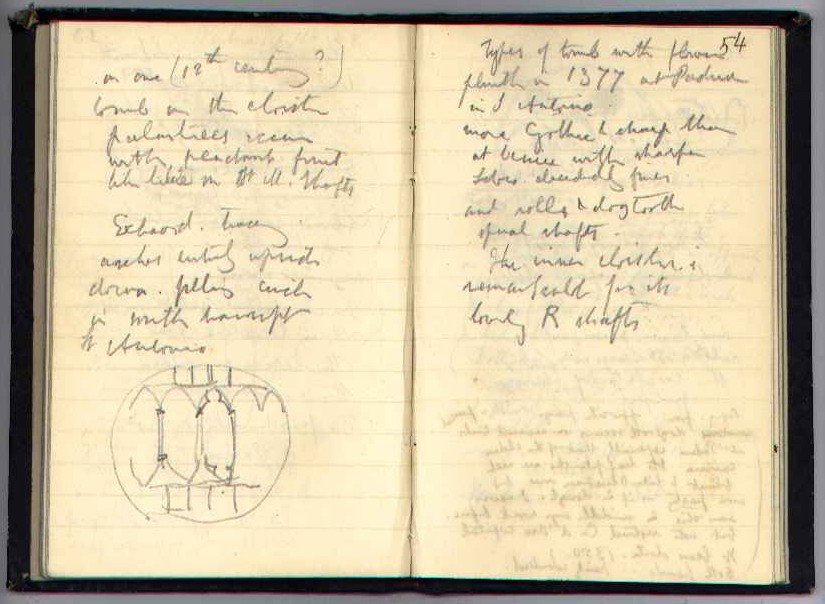 on one (12th century?)
tomb in the cloister
pilasters occur
with pendant fruit
like on St M. Shafts
Extraord. tracery
arches entirely upside
down. filling circle
in south transept
St Antonio
54
Types of tomb with flower
plinth in 1377 at Padua
in S Antonio.
more Gothic & sharp than
at Venice with sharper
decidedly finer
and rolls & dogtooth
spiral shafts.
The inner cloister is
remarkable for its
lovely R shafts